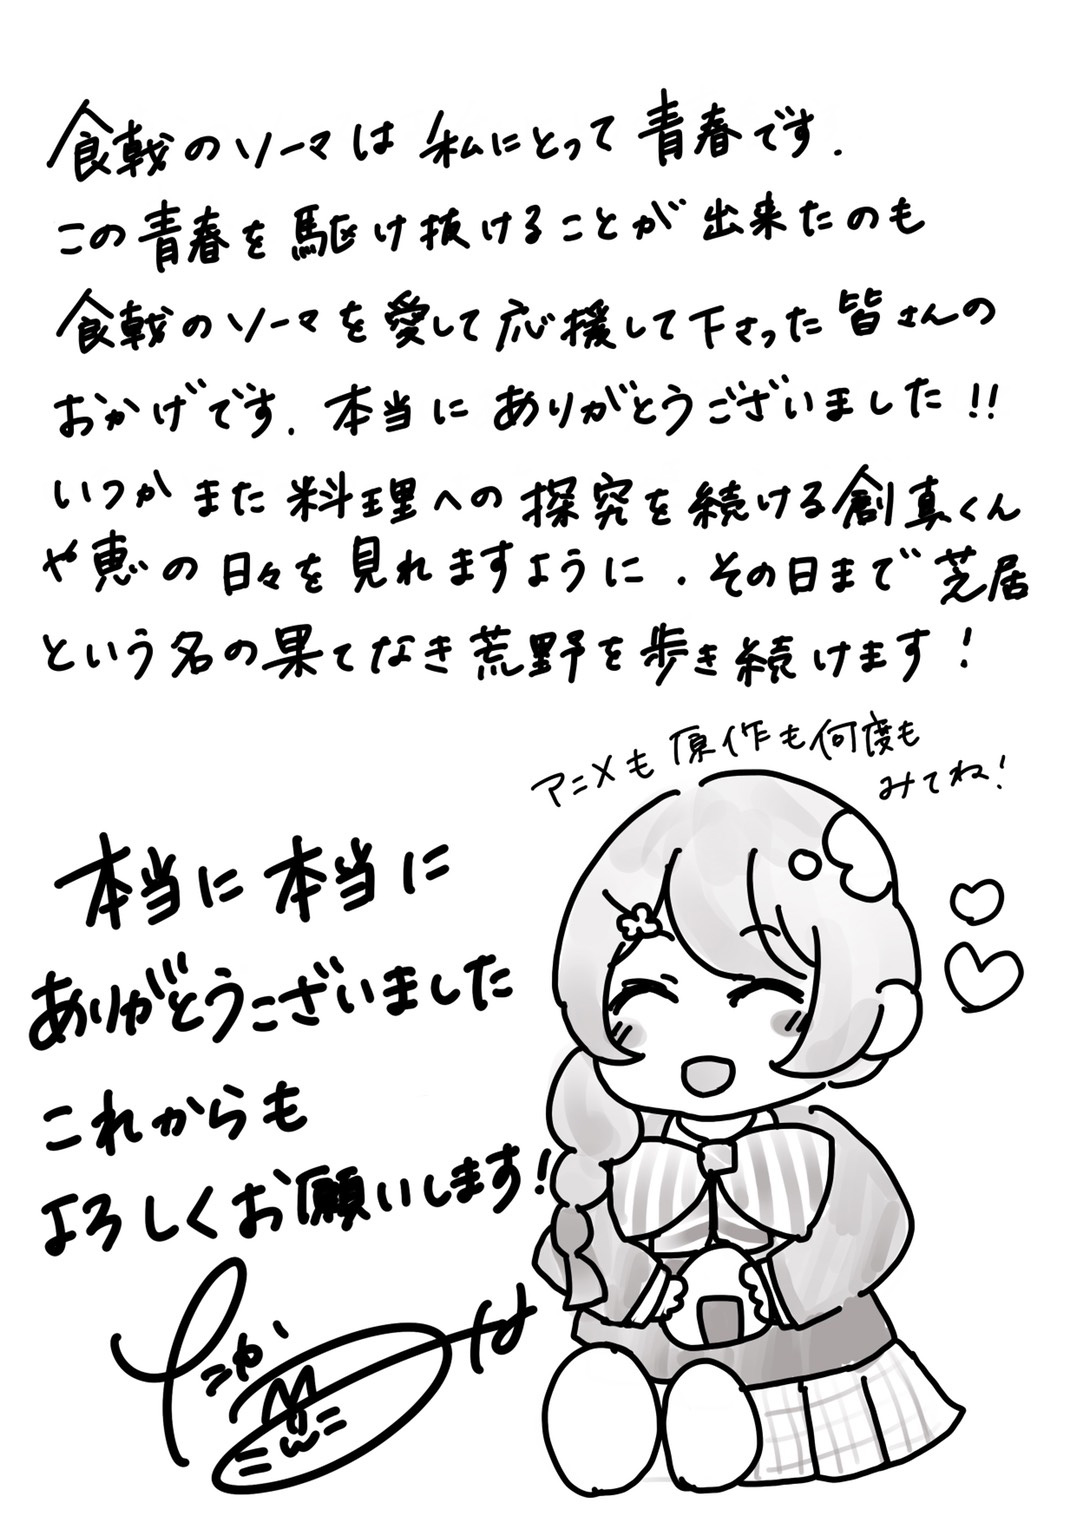 食戟のソーマは私にとって青春です.
この青春を駆け抜けることが出来たのも
食戟のソーマを愛して応援して下さった皆さんの
おかげです.本当にありがとうございました!!
いつかまた料理への探究を続ける創真くん
や恵の日々を見れますように.その日まで芝居
という名の果てなき荒野を歩き続けます!
アニメも原作も何度も
みてね!
本当に本当に
ありがとうございました
これからも
よろしくお願いします!